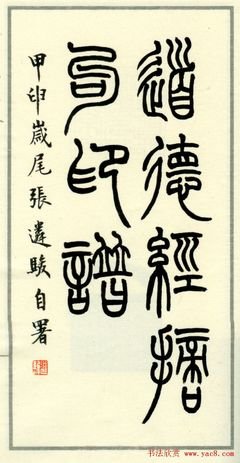 道德經摘
句印譜
甲申歲尾張遴駿自署
书法欣赏
www.yac8.com